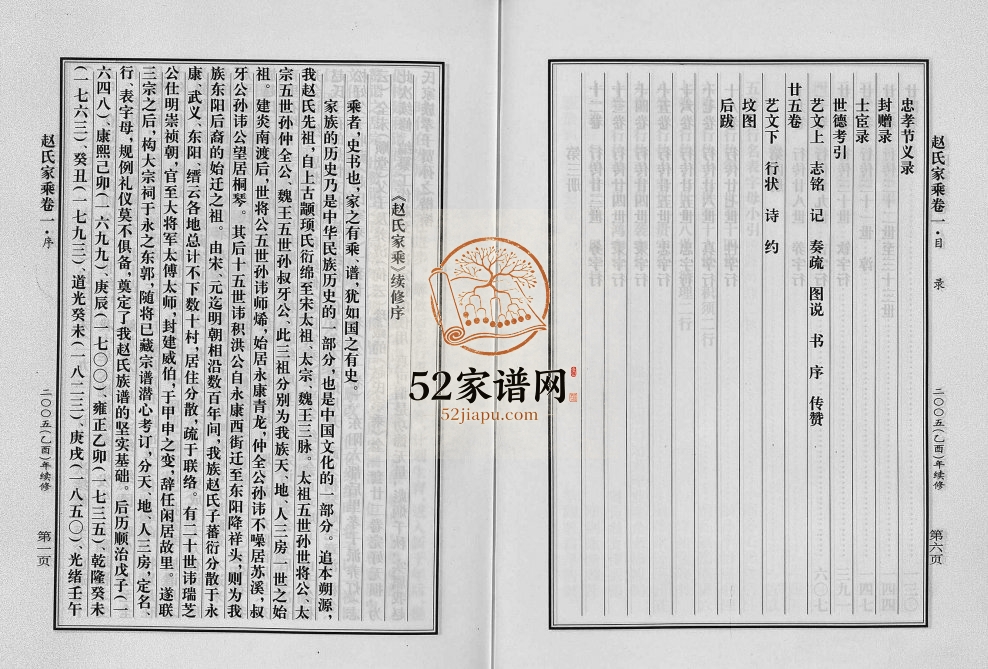 赵氏家乘卷一·目 录
二〇〇五(乙酉)年续修
第六页
忠孝节义录
三〇
封赠录
四四
士宦录
四七
世德考引
九一
艺文上 志铭 记 奏疏 图说 书 序 传赞
六〇七
廿五卷
艺文下 行状 诗 约
坟图
后跋
《赵氏家乘》续修序
乘者，史书也，家之有乘、谱，犹如国之有史。
家族的历史乃是中华民族历史的一部分，也是中国文化的一部分。追本朔源，
我赵氏先祖，自上古颛项氏衍绵至宋太祖、太宗、魏王三脉。太祖五世孙世将公、太
宗五世孙仲全公、魏王五世孙叔牙公，此三祖分别为我族天、地、人三房一世之始
祖。建炎南渡后，世将公五世孙讳师烯，始居永康青龙，仲全公孙讳不噪居苏溪，叔
牙公孙讳公望居桐琴。其后十五世讳积洪公自永康西街迁至东阳降祥头，则为我
族东阳后裔的始迁之祖。由宋、元迄明朝相沿数百年间，我族赵氏子蕃衍分散于永
康、武义、东阳、缙云各地总计不下数十村，居住分散，疏于联络。有二十世讳瑞芝
公仕明崇祯朝，官至大将军太傅太师，封建威伯，于甲申之变，辞任闲居故里。遂联
三宗之后，构大宗祠于永之东郭，随将已藏宗谱潜心考订，分天、地、人三房，定名、
行、表字母，规例礼仪莫不俱备，奠定了我赵氏族谱的坚实基础。后历顺治戊子(一
六四八)、康熙己卯(一六九九)、庚辰(一七〇〇)、雍正乙卯(一七三五)、乾隆癸未
(一七六三)、癸丑(一七九三)、道光癸未(一八二三)、庚戌(一八五〇)、光绪壬午
赵氏家乘卷一·序
二〇〇五(乙酉)年续修
第一页
52家谱网
52jiapu.com